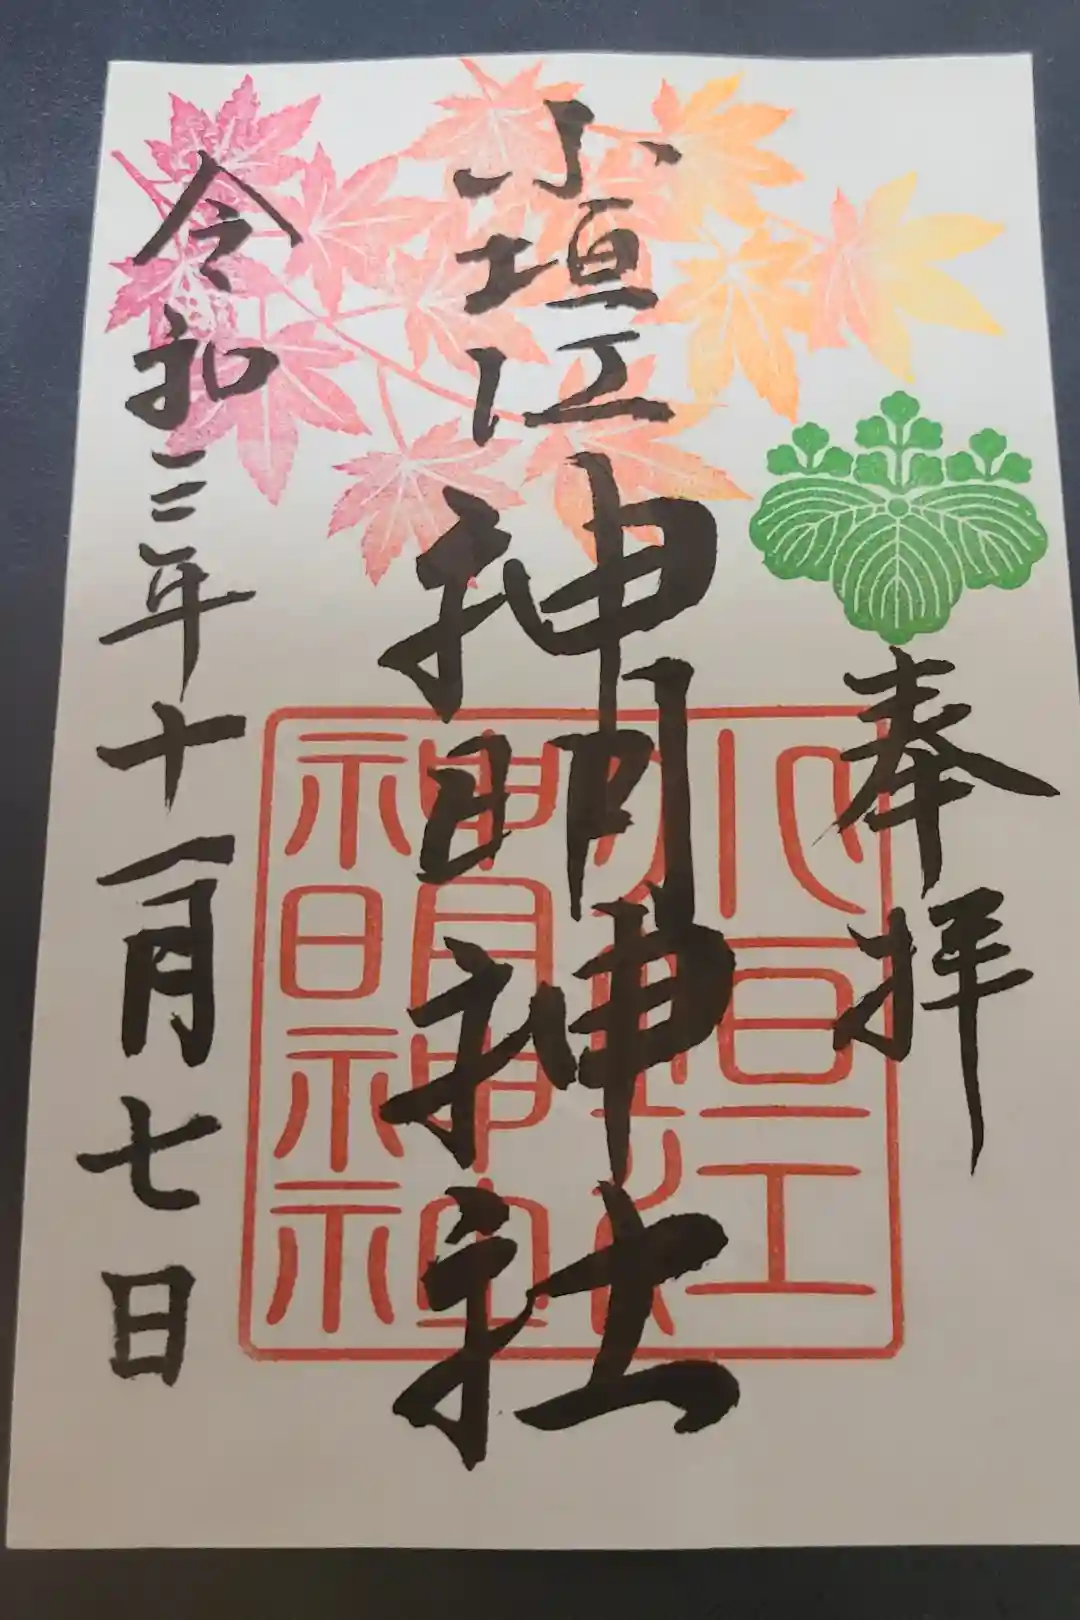 奉拝
小垣江神明神社
小垣江
神明神社
令和三年十一月七日